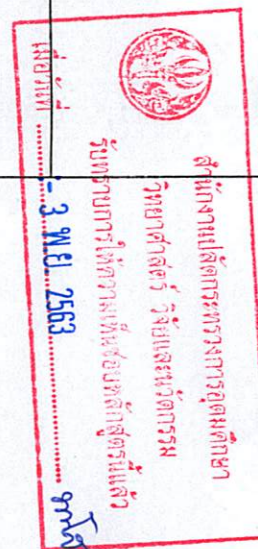 สำนักงานปลัดกระทรวงการอุดมศึกษา
วิทยาศาสตร์ วิจัยและนวัตกรรม
รับทราบการให้ความเห็นชอบหลักสูตรนี้แล้ว
เมื่อวันที่ - 3 พ.ย. 2563